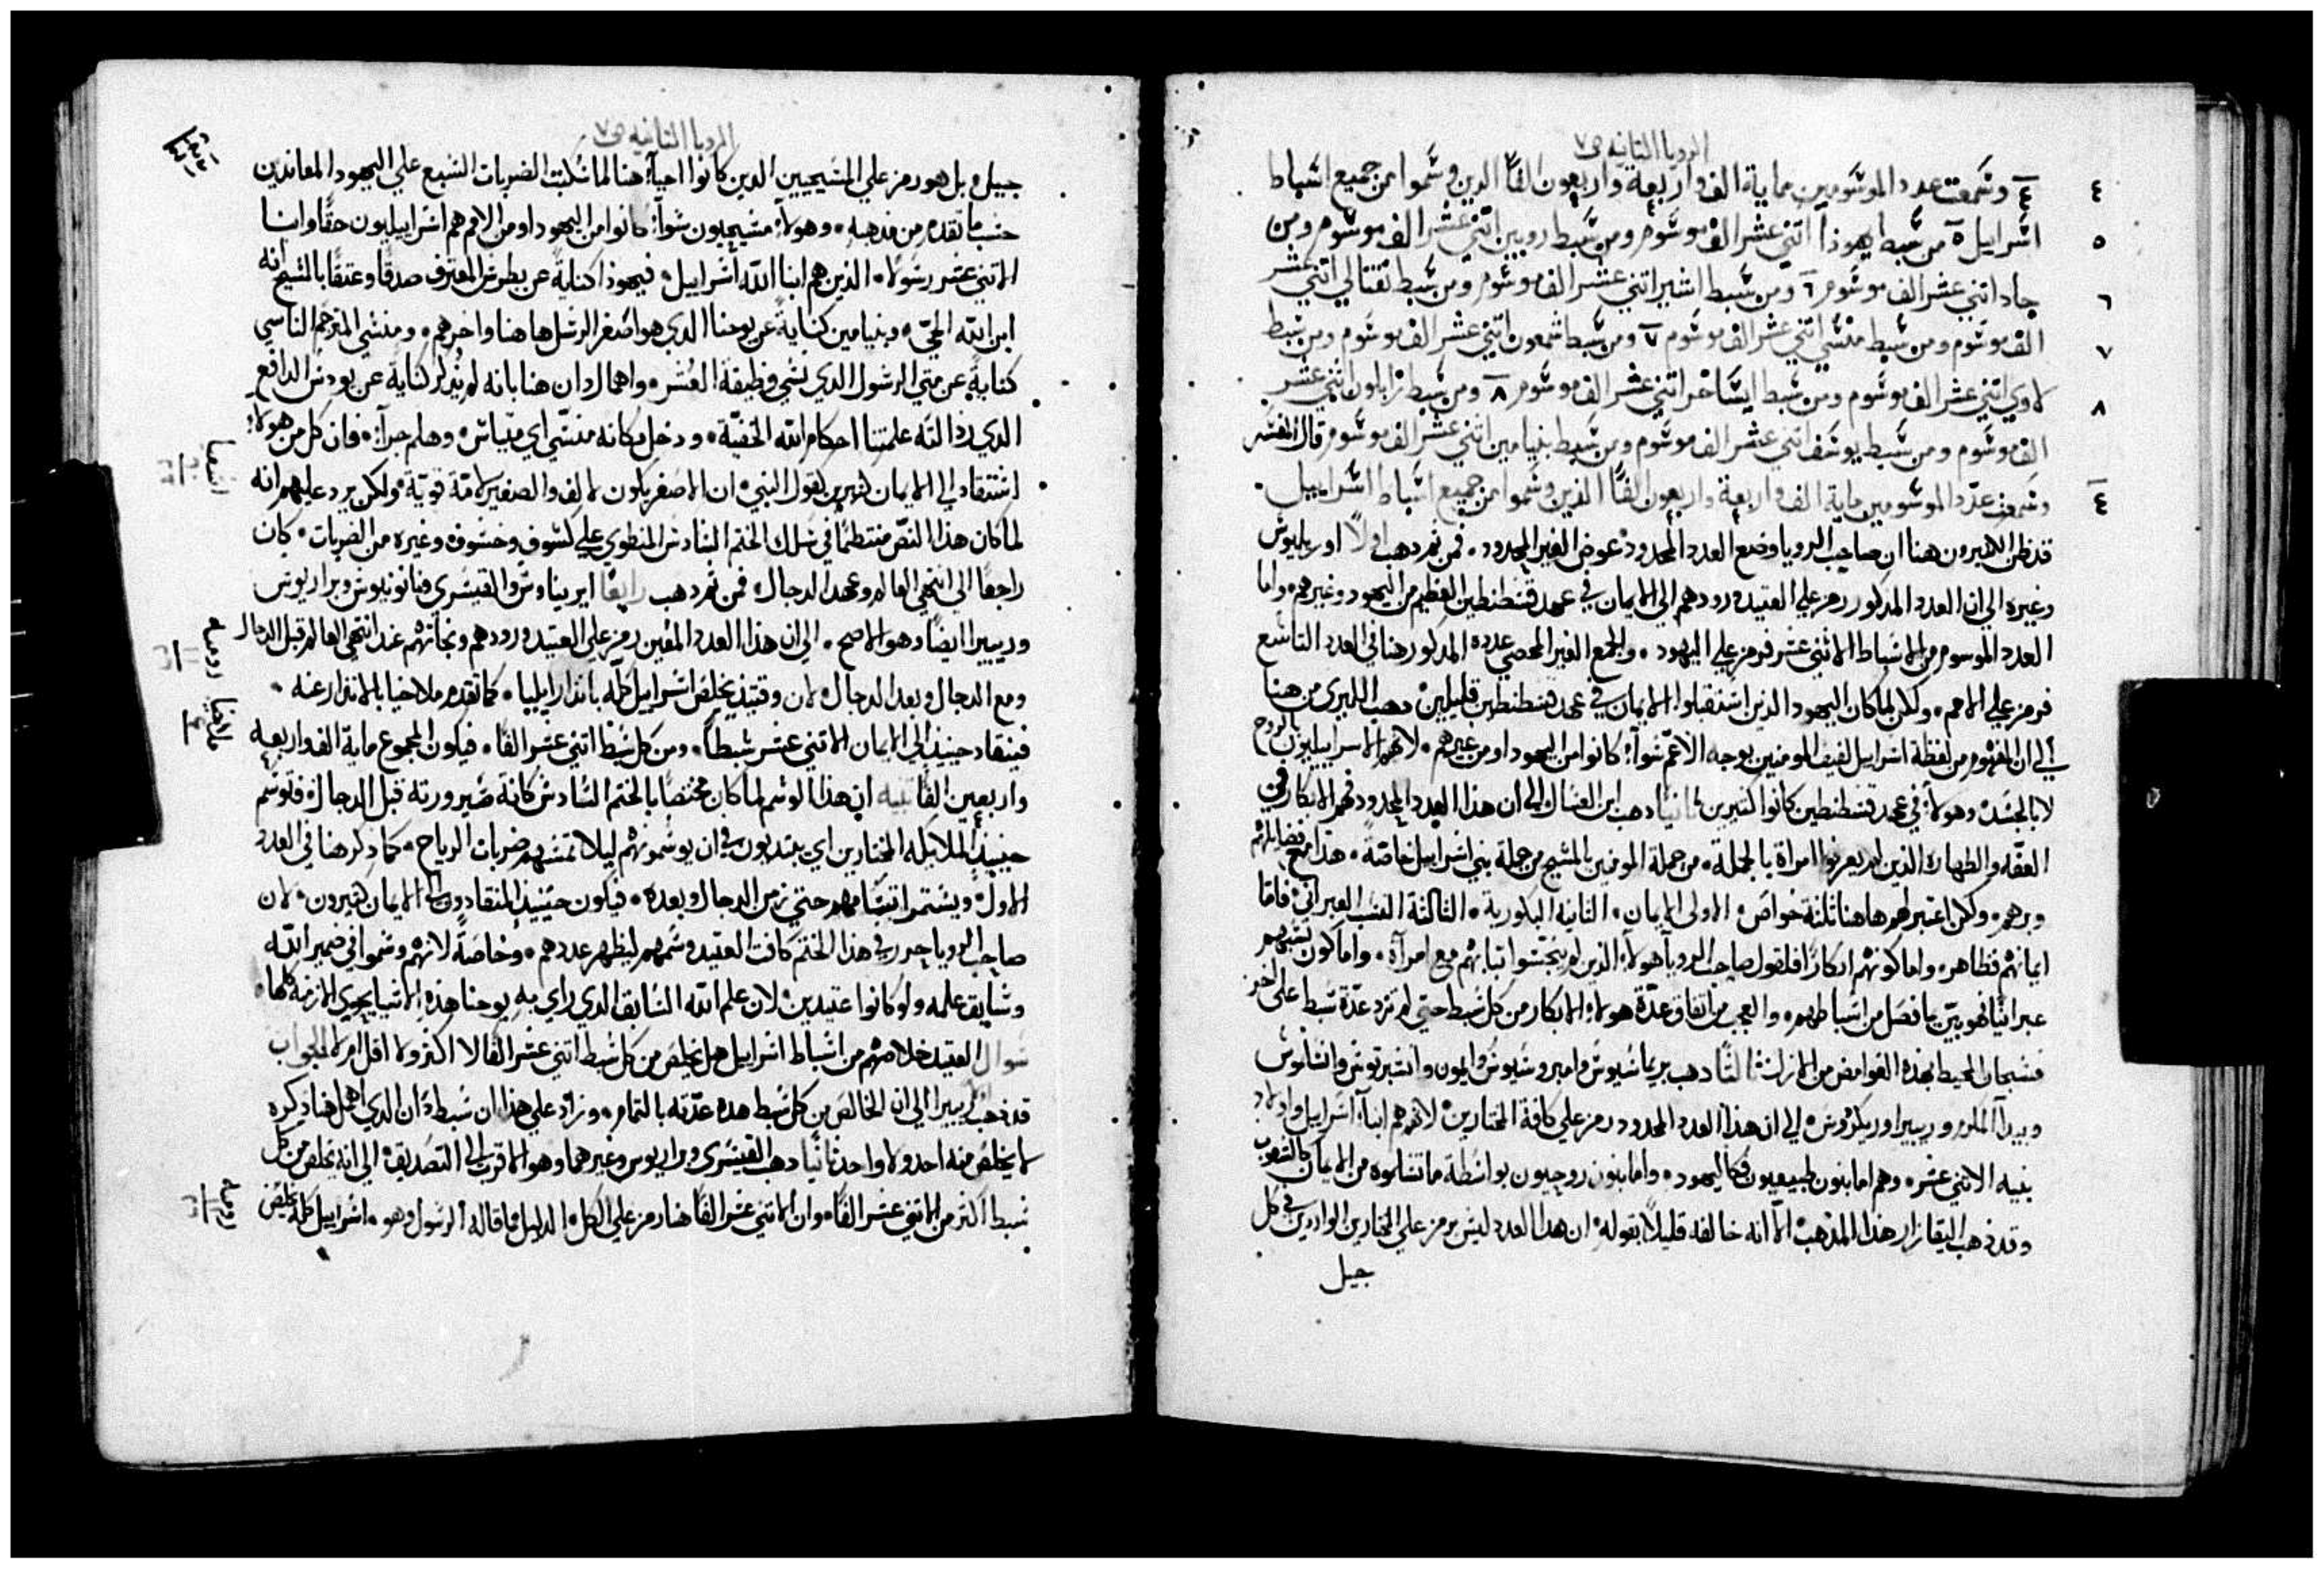 الرويا الثانيه ص ٧
٤ ٤ وسَمعت عدد الموسَومين ماية الف واربعة واربعون الفًا الدين وسَموا من جميع اسَباط
٥ اسَراييل ٥ من سَبط يهوذا اتني عشر الف موسَوم ومن سَبط روبين اتني عشر الف موسَوم ومن
٦ جاد اتني عشر الف موسَوم ٦ ومن سَبط اشير اتني عشر الف موسَوم ومن سَبط نفتالي اتني عشر
٧ الف موسَوم ومن سَبط منسَي اتني عشر الف موسَوم ٧ ومن سَبط شمعون اتني عشر الف موسَوم ومن سَبط
٨ لاوي اتني عشر الف موسَوم ومن سَبط ايسَاخر اتني عشر الف موسَوم ٨ ومن سَبط زابلون اثني عشر
الف موسَوم ومن سَبط يوسَف اتني عشر الف موسَوم ومن سَبط بنيامين اتني عشر الف موسَوم قال المفسَر
٤ وسَمعت عدد الموسَومين ماية الف واربعة واربعون الفًا الذين وسَموا من جميع اسَباط اسَراييل
قد ظن الكتيرون هنا ان صاحب الرويا وضع العدد المحدود عوض الغير المحدود. فمن ثم دهب اولاً اوريليوسَ
وغيره الي ان العدد المدكور رمز علي العتيد ورودهم الي الايمان في عهد قسَطنطين العظيم من اليهود وغيرهم. واما
العدد الموسوم من الاسَباط الاثني عشر فرمز علي اليهود. والجمع الغير المحصي عدده المدكور هنا في العدد التاسَع
فرمز علي الامم. ولكن لما كان اليهود الذين اسَتقبلوا الايمان في عهد قسَطنطين قليلين. دهب الكبيري من هنا
الي ان المفهوم من لفظة اسَراييل لفيف المومنين بوجه الاعم سَوآء كانوا من اليهود او من غيرهم. لانهم الاسراييليون بالروح
لا بالجسَد وهولآء في عهد قسَطنطين كانوا كتيرين ثانيًا دهب ابن العسَال الي ان هذا العدد المحدود فهم الابكار في
العفة والطهارة الذين لم يعرفوا امراة بالجملة. من جملة المومنين بالمسَيح من جملة بني اسَراييل خاصّة. هذا مع فضايلهم
وبرهم. ولكن اعتبر لهم هاهنا ثلثة خواصّ. الاولى الايمان. الثانية البكورية. الثالثة النسَب العبراني. فاما
ايمانهم فظاهر. واما كونهم ابكارًا فلقول صاحب الرويا هولآء الذين لم ينجسَوا تيابهم مع امرآة. واما كون نسَبهم
عبرانيًا فهو بيّن بما فصل من اسَباطهم. والعجب من اتفاق عدّة هولآء الابكار من كل سَبط حتي لم تزد عدّة سَبط على اخر
فسَبحان المحيط بهذه الغوامض من الازل ثالثًا دهب بريماسَيوسَ وامبروسَيوسَ وايمون وانسَبرتوسَ وانسَلوسَ
وبيدا المكرم وريبيرا اوريكزوسَ الي ان هذا العدد المحدود رمز علي كافة المختارين. لانهم هم ابنآء اسَراييل واولاد
بنيه الاتني عشر. وهم اما بنون طبيعيون فكاليهود. واما بنون روحيون بواسَطة ما تسَلموه من الايمان كالشعوب
وقد ذهب اليقازار هذا المذهب الاّ انه خالفه قليلاً بقوله ان هذا العدد ليسَ برمز علي المختارين الواردين في كل
جيل
الرويا الثانيه ص ٧
جيل. بل هو رمز علي المسَيحيين الدين كانوا احيآء هنا لما سَكبت الضربات السَبع علي اليهود المعاندين
حسَب ما تقدم من مذهبه. وهولآء مسَيحيون سَوآء كانوا من اليهود او من الامم هم اسَراييليون حقًا وابنا
الاتني عشر رسَولاً. الذين هم ابنا الله اسَراييل. فيهوذا كناية عن بطرسَ المعترف صدقًا وعتقًا بالمسَيح انه
ابن الله الحيّ. وبنيامين كناية عن يوحنا الدي هو اصغر الرسَل هاهنا واخرهم. ومنسَي المترجم الناسَي
كناية عن متي الرسَول الدي نسَي وظيفة العُشر. واهمال دان هنا بانه لم يُذكر كناية عن يودسَ الدافع
الدي رذالته علمتنا احكام الله الخفيّة. ودخل مكانه منسَّي اي متياسَ. وهلم جرآء. فان كل من هولآء
اشعيا اسَتقاد الي الايمان كتيرين لقول النبي ان الاصغر يكون لالف والصغير لامّة قويّة. ولكن يرد عليهم انه
لما كان هذا النصّ منتظمًا في سَلك الختم السَادسَ المنطوي علي كسَوف وخسَوف وغيره من الضربات. كان
راجعًا الى انتهي العالم وعهد الدجال. فمن ثم دهب رابعًا ايريناوسَ والقيسَري وفانونيوسَ وبراريوسَ
وريبيرا ايضًا وهو الاصح. الي ان هذا العدد المعين رمز علي العتيد ورودهم ونجاتهم عند انتهي العالم قبل الدجال
روميه ومع الدجال وبعد الدجال. لان وقتيذ يخلص اسَراييل كله بانذار ايليا. كما تقدم ملاخيا بالانذار عنه.
ملاخيا فينقاد حينيذ الي الايمان الاتني عشر سَبطًا. ومن كل سَبط اتني عشر الفًا. فيكون المجموع ماية الف واربعة
واربعين الفًا تنبيه ان هذا الوسَم لما كان مختصًا بالختم السَادسَ كانه ضيرورته قبل الدجال. فتوسَم
حينيذ الملايكة المختارين اي يبتديون في ان يوسَموهم ليلا تمسَهم ضربات الرياح. كما دكر هنا في العدد
الاول. ويسَتمر اتسَامهم حتي زمن الدجال وبعده. فيكون حينيذ المنقادون الي الايمان كتيرون. لان
صاحب الرويا حرر في هذا الختم كافة العتيد وسَمهم ليظهر عددهم. وخاصّةً لانهم وسَموا في ضمير الله
وسَابق علمه ولو كانوا عتيدين. لان علم الله السَابق الدي راي به يوحنا هذه الاشيا يحوي الازمنة كلها.
سَوال العتيد خلاصهم من اسَباط اسَراييل هل يخلص من كل سَبط اتني عشر الفًا لا اكثر ولا اقل ام لا الجواب
قد ذهب ريبيرا الي ان الخالص من كل سَبط هده عدّته بالتمام. وزاد علي هذا ان سَبط دان الدي اهمل هنا ذكره
لا يخلص منه احد ولا واحد ثانيًا دهب القيسَري وبراريوس وغيرهما وهو الاقرب الي التصديق. الي انه يخلص من كل
روميه سَبط اكثر من الاتني عشر الفًا. وان الاتني عشر الفًا هنا رمز علي الكل. الدليل ما قاله الرسَول وهو. اسَراييل كله يخلص